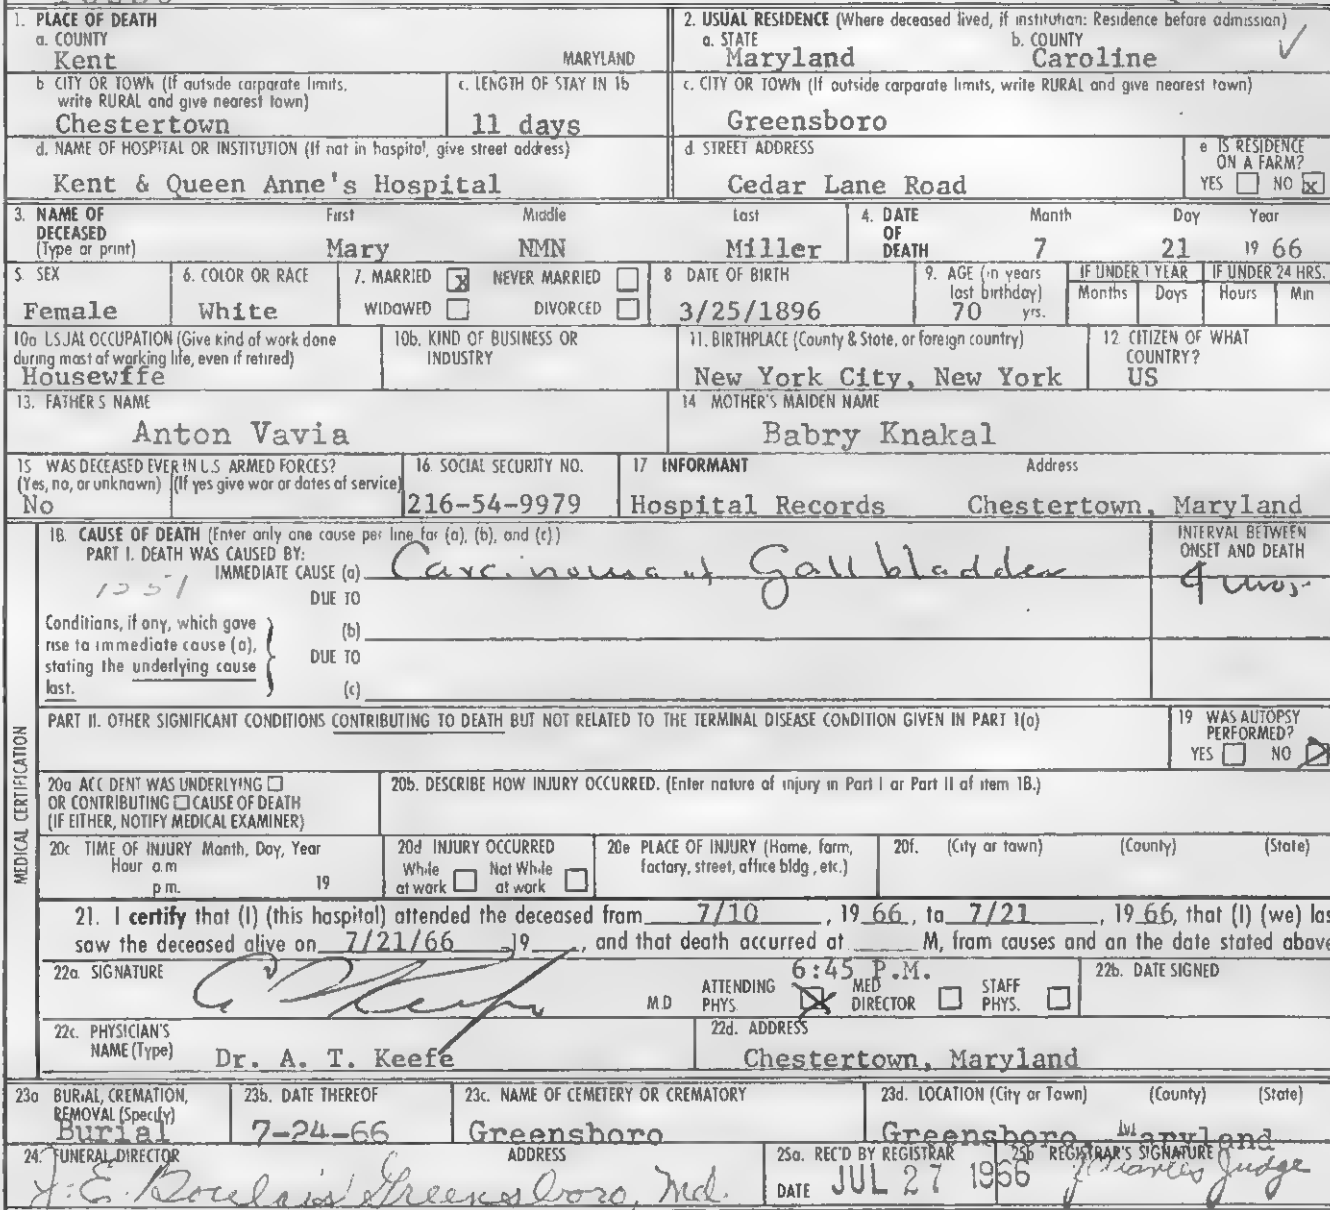 1. PLACE OF DEATH
a. COUNTY
Kent MARYLAND
2. USUAL RESIDENCE (Where deceased lived, if institution: Residence before admission)
a. STATE b. COUNTY
Maryland Caroline
b CITY OR TOWN (If outside corporate limits,
write RURAL and give nearest town)
Chestertown
c. LENGTH OF STAY IN 1b
11 days
c. CITY OR TOWN (If outside corporate limits, write RURAL and give nearest town)
Greensboro
d. NAME OF HOSPITAL OR INSTITUTION (If not in hospital, give street address)
Kent & Queen Anne's Hospital
d STREET ADDRESS
Cedar Lane Road
e IS RESIDENCE
ON A FARM?
YES NO x
3. NAME OF
DECEASED
(Type or print)
First Middle Last
Mary NMN Miller
4. DATE
OF
DEATH
Month Day Year
7 21 19 66
5. SEX
Female
6. COLOR OR RACE
White
7. MARRIED x NEVER MARRIED
WIDOWED DIVORCED
8 DATE OF BIRTH
3/25/1896
9. AGE (in years
last birthday)
70 yrs.
IF UNDER 1 YEAR
Months Days
IF UNDER 24 HRS.
Hours Min
10a USUAL OCCUPATION (Give kind of work done
during most of working life, even if retired)
Housewffe
10b. KIND OF BUSINESS OR
INDUSTRY
11. BIRTHPLACE (County & State, or foreign country)
New York City, New York
12 CITIZEN OF WHAT
COUNTRY?
US
13. FATHER'S NAME
Anton Vavia
14 MOTHER'S MAIDEN NAME
Babry Knakal
15 WAS DECEASED EVER IN U.S ARMED FORCES?
(Yes, no, or unknown) (If yes give war or dates of service)
No
16. SOCIAL SECURITY NO.
216-54-9979
17 INFORMANT Address
Hospital Records Chestertown, Maryland
18. CAUSE OF DEATH (Enter only one cause per line for (a), (b), and (c).)
PART I. DEATH WAS CAUSED BY:
IMMEDIATE CAUSE (a) Carcinoma of Gall bladder
INTERVAL BETWEEN
ONSET AND DEATH
4 mos.
DUE TO
Conditions, if any, which gave
rise to immediate cause (a),
stating the underlying cause
last.
(b)
DUE TO
(c)
PART II. OTHER SIGNIFICANT CONDITIONS CONTRIBUTING TO DEATH BUT NOT RELATED TO THE TERMINAL DISEASE CONDITION GIVEN IN PART I(a)
19 WAS AUTOPSY
PERFORMED?
YES NO
MEDICAL CERTIFICATION
20a ACCIDENT WAS UNDERLYING
OR CONTRIBUTING CAUSE OF DEATH
(IF EITHER, NOTIFY MEDICAL EXAMINER)
20b. DESCRIBE HOW INJURY OCCURRED. (Enter nature of injury in Part I or Part II of item 18.)
20c TIME OF INJURY Month, Day, Year
Hour a.m
p m. 19
20d INJURY OCCURRED
While at work Not While at work
20e PLACE OF INJURY (Home, farm,
factory, street, office bldg, etc.)
20f. (City or town) (County) (State)
21. I certify that (I) (this hospital) attended the deceased from 7/10, 19 66, to 7/21, 19 66, that (I) (we) las
saw the deceased alive on 7/21/66 19 , and that death occurred at M, from causes and on the date stated above
6:45 P.M.
22a. SIGNATURE
M.D ATTENDING PHYS. MED DIRECTOR STAFF PHYS.
22b. DATE SIGNED
22c. PHYSICIAN'S
NAME (Type) Dr. A. T. Keefe
22d. ADDRESS
Chestertown, Maryland
23a BURIAL, CREMATION,
REMOVAL (Specify)
Burial
23b. DATE THEREOF
7-24-66
23c. NAME OF CEMETERY OR CREMATORY
Greensboro
23d. LOCATION (City or Town) (County) (State)
Greensboro Maryland
24. FUNERAL DIRECTOR ADDRESS
J. E. Boulais Greensboro, Md.
25a. REC'D BY REGISTRAR
DATE JUL 27 1966
25b REGISTRAR'S SIGNATURE
Charles Judge